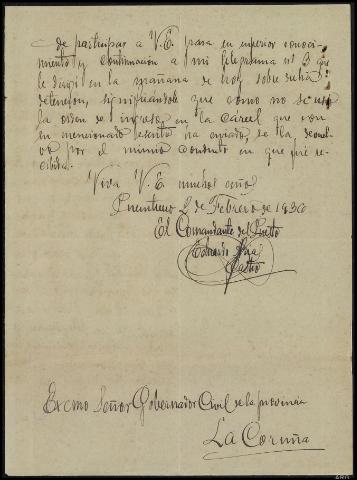 de participar a V.E. para su superior conoci-
miento y continuacion a mi telegrama nº 3 que
le dirigí en la mañana de hoy sobre dicha
detencion, significandole que como no se usó
la orden de ingreso en la carcel que con
su mencionado escrito ha enviado, se la devuel-
vo por el mismo conducto en que fué re-
cibida.
Viva V.E. muchos años
Puenteceso 2 de Febrero de 1936
El Comandante del Puesto
Castro
Excmo Señor Gobernador Civil de la provincia
La Coruña